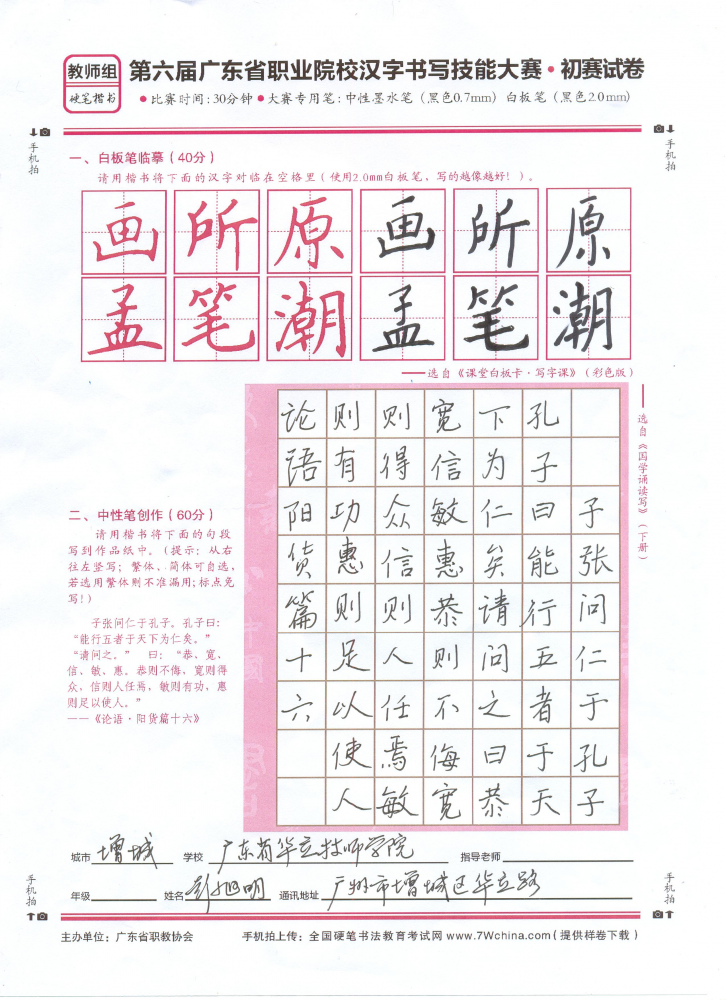 教师组
硬笔楷书
第六届广东省职业院校汉字书写技能大赛·初赛试卷
●比赛时间:30分钟 ●大赛专用笔:中性墨水笔(黑色0.7mm) 白板笔(黑色2.0mm)
手机拍
手机拍
一、白板笔临摹(40分)
请用楷书将下面的汉字对临在空格里(使用2.0mm白板笔,写的越像越好!)。
画所原画所原
孟笔潮孟笔潮
——选自《课堂白板卡·写字课》(彩色版)
——选自《国学诵读写》(下册)
二、中性笔创作(60分)
请用楷书将下面的句段
写到作品纸中。(提示:从右
往左竖写;繁体、简体可自选,
若选用繁体则不准漏用;标点免
写!)
子张问仁于孔子。孔子曰:
“能行五者于天下为仁矣。”
“请问之。” 曰:“恭、宽、
信、敏、惠。恭则不侮,宽则得
众,信则人任焉,敏则有功,惠
则足以使人。”
——《论语·阳货篇十六》
子张问仁于孔子
孔子曰能行五者于天
下为仁矣请问之曰恭
宽信敏惠恭则不侮宽
则得众信则人任焉敏
则有功惠则足以使人
论语阳货篇十六
城市 增城 学校 广东省华立技师学院 指导老师
年级 姓名 彭旭明 通讯地址 广州市增城区华立路
手机拍
手机拍
主办单位:广东省职教协会 手机拍上传:全国硬笔书法教育考试网 www.7Wchina.com(提供样卷下载)